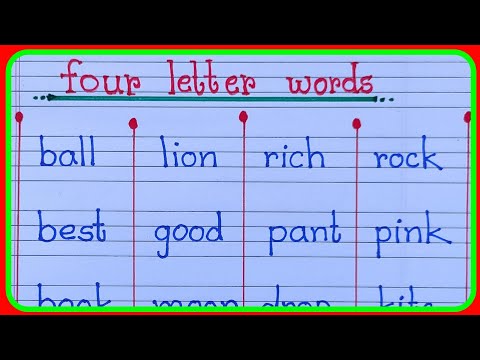 four letter words
ball lion rich rock
best good pant pink